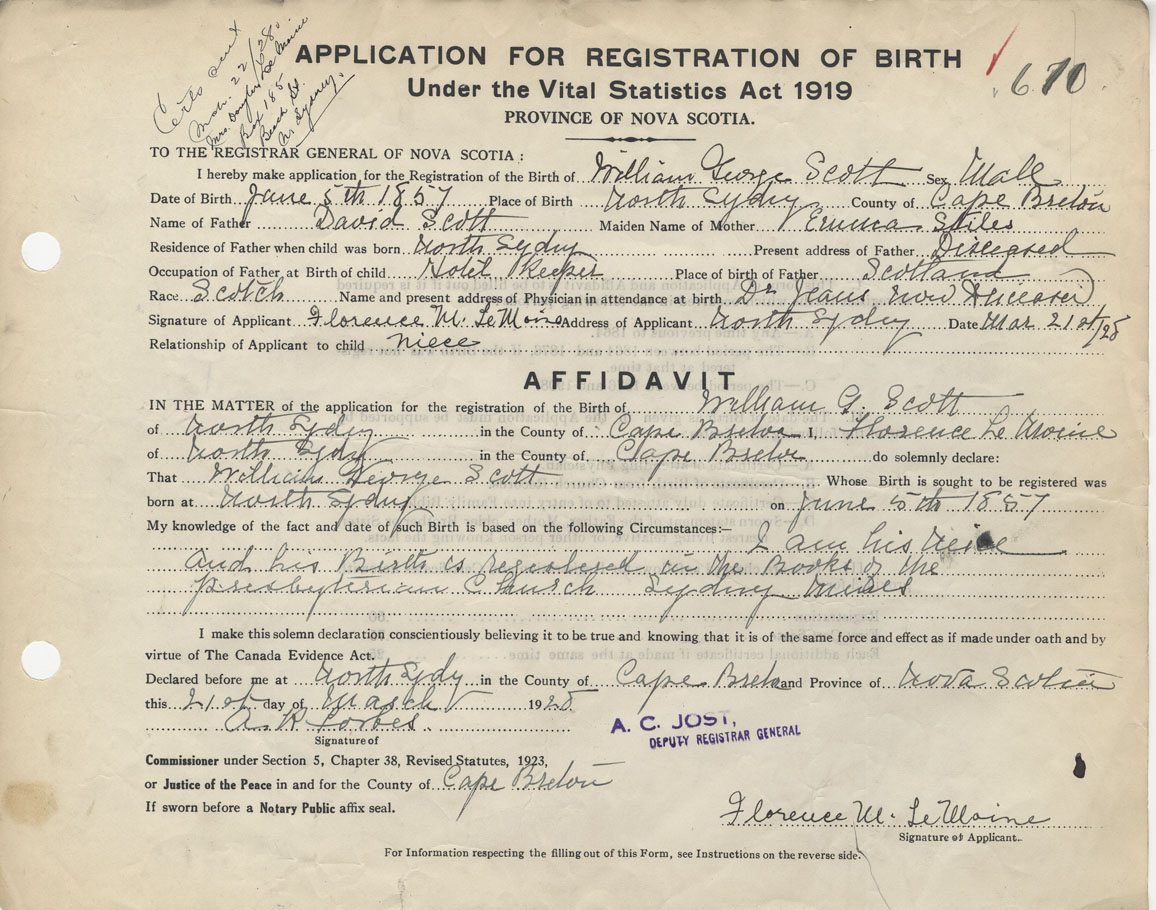 Certs sent
Mar. 22/28
Mrs. Douglas LeMoine
Box 185
Beach St.
N. Sydney.
APPLICATION FOR REGISTRATION OF BIRTH
670
Under the Vital Statistics Act 1919
PROVINCE OF NOVA SCOTIA.
TO THE REGISTRAR GENERAL OF NOVA SCOTIA:
I hereby make application for the Registration of the Birth of William George Scott Sex Male
Date of Birth June 5th 1857 Place of Birth North Sydney County of Cape Breton
Name of Father David Scott Maiden Name of Mother Emma Stiles
Residence of Father when child was born North Sydney Present address of Father Diseased
Occupation of Father at Birth of child Hotel Keeper Place of birth of Father Scotland
Race Scotch Name and present address of Physician in attendance at birth Dr Jeans now Deceased
Signature of Applicant Florence M. LeMoine Address of Applicant North Sydney Date Mar 21st/28
Relationship of Applicant to child niece
AFFIDAVIT
IN THE MATTER of the application for the registration of the Birth of William G. Scott
of North Sydney in the County of Cape Breton I, Florence Le Moine
of North Sydney in the County of Cape Breton do solemnly declare:
That William George Scott Whose Birth is sought to be registered was
born at North Sydney on June 5th 1857
My knowledge of the fact and date of such Birth is based on the following Circumstances:—
I am his neice
and his Birth is registered in the Books of the
Presbyterian Church Sydney mines
I make this solemn declaration conscientiously believing it to be true and knowing that it is of the same force and effect as if made under oath and by
virtue of The Canada Evidence Act.
Declared before me at North Sydney in the County of Cape Breton and Province of Nova Scotia
this 21st day of March 1928
A. R. Forbes
A. C. JOST,
DEPUTY REGISTRAR GENERAL
Signature of
Commissioner under Section 5, Chapter 38, Revised Statutes, 1923,
or Justice of the Peace in and for the County of Cape Breton
If sworn before a Notary Public affix seal.
Florence M. LeMoine
Signature of Applicant.
For Information respecting the filling out of this Form, see Instructions on the reverse side.